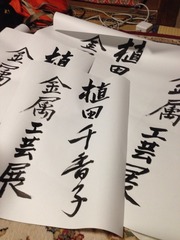 植田
金
植
金属
植田千香子
金属工芸展
属工芸展